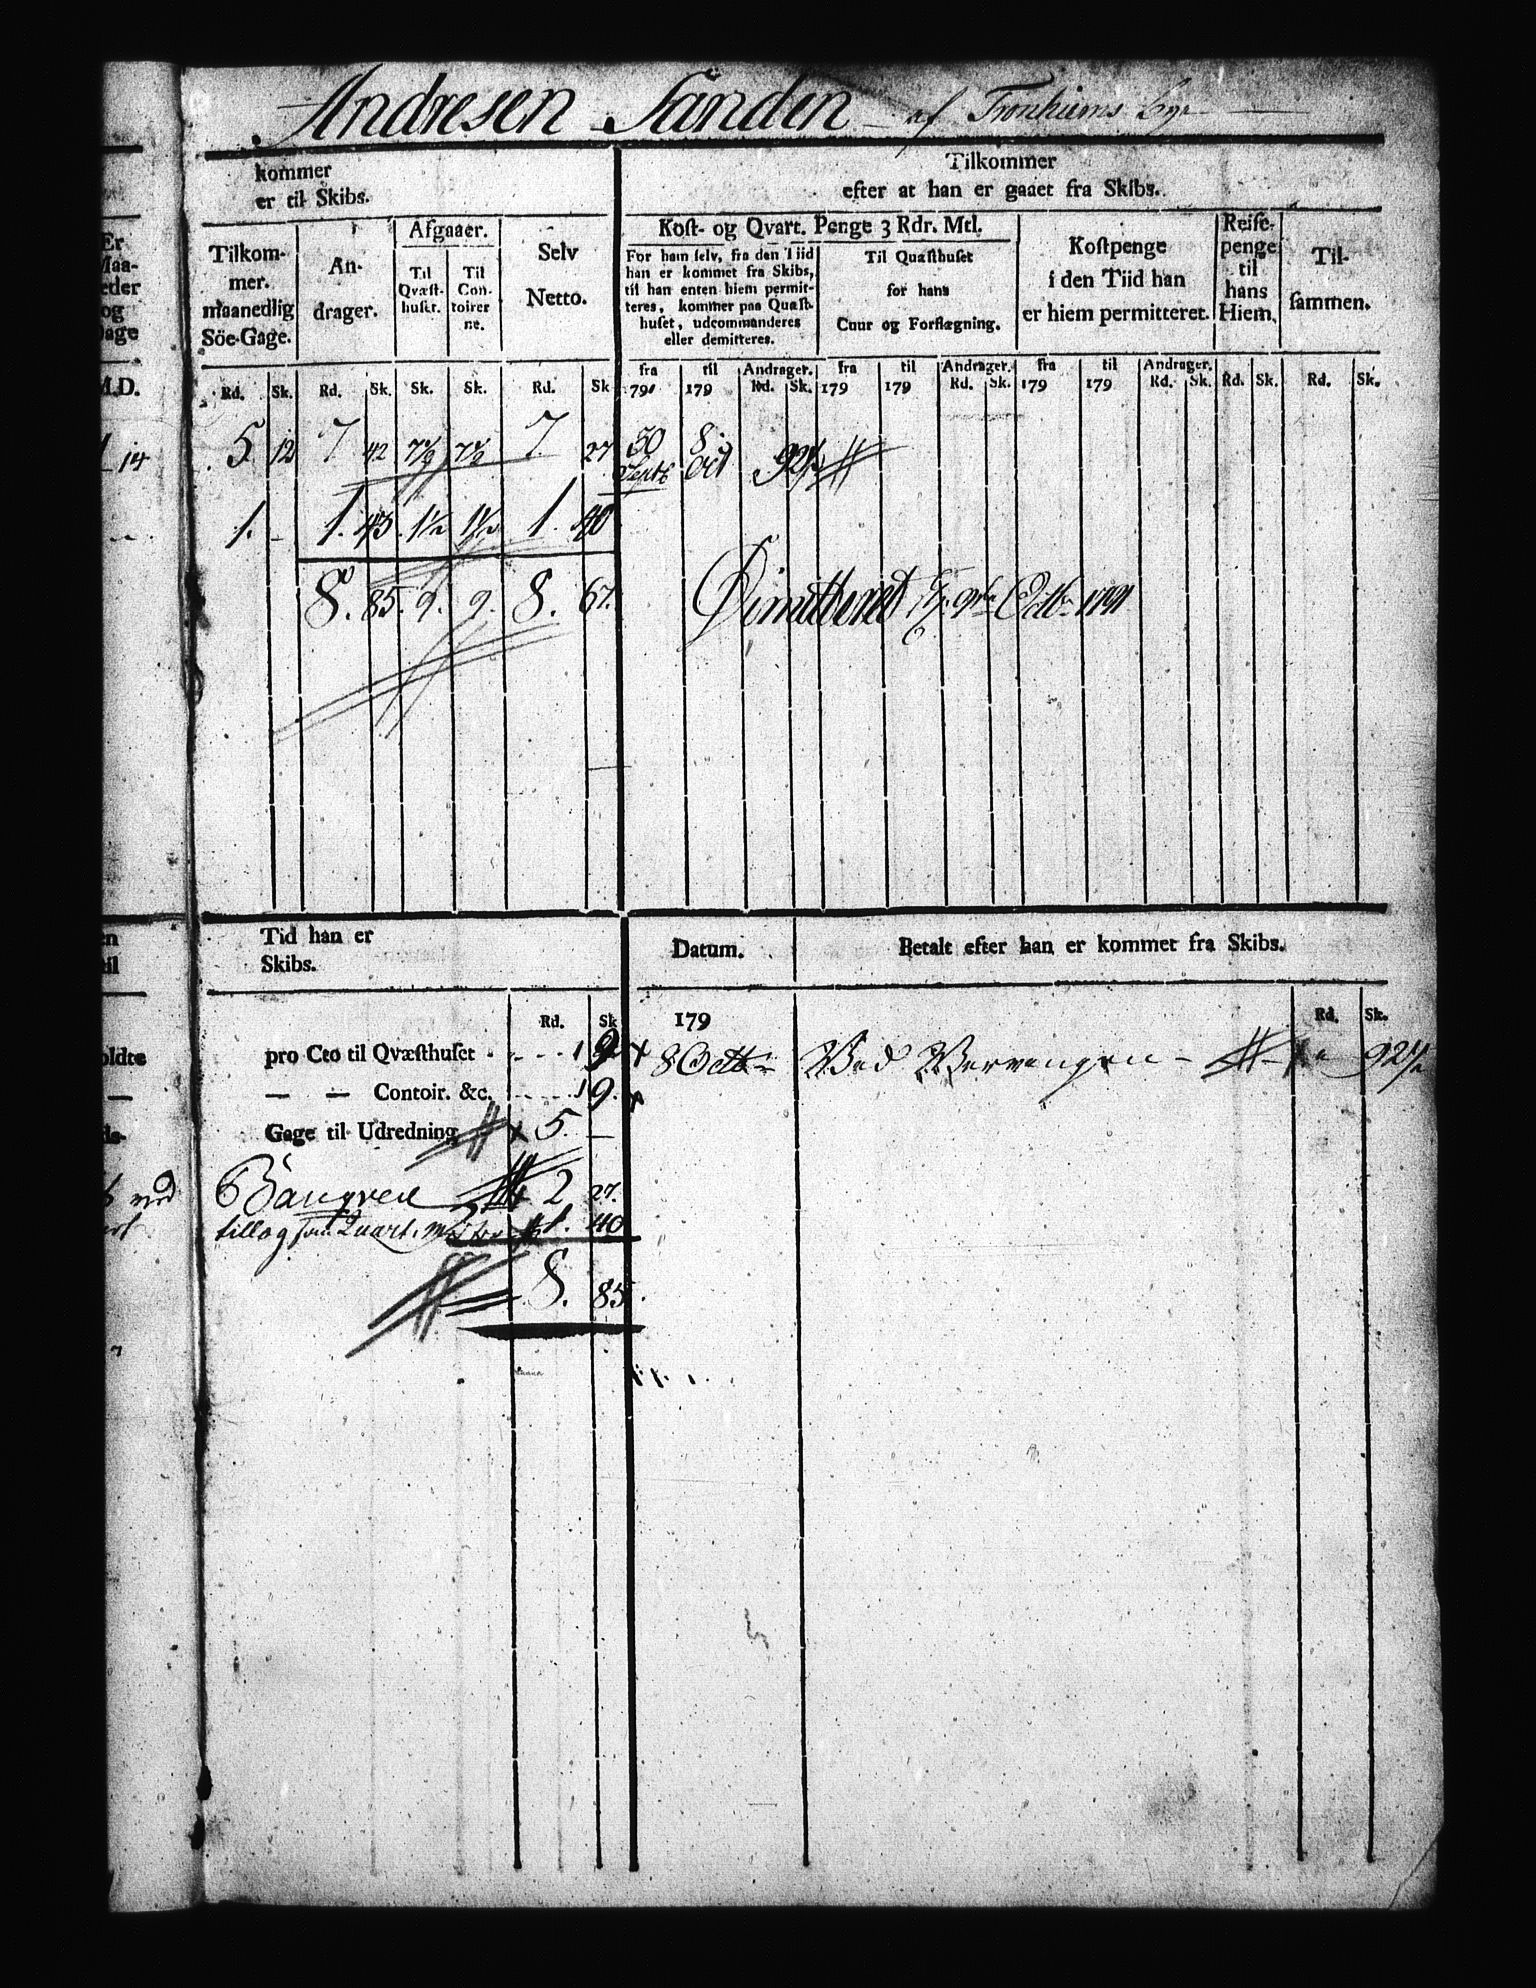 Andresen Sanden af Tronhiems Bye
kommer
er til Skibs.
Tilkommer
efter at han er gaaet fra Skibs.
Er
Maa-
eder
og
Gage
Tilkom-
mer.
maanedlig
Söe-Gage.
An-
drager.
Afgaaer.
Til
Qvæst-
huset.
Til
Con-
toirer
ne.
Selv
Netto.
Kost- og Qvart. Penge 3 Rdr. Mtl.
For ham selv, fra den Tiid
han er kommet fra Skibs,
til han enten hiem permit-
teres, kommer paa Quæst-
huset, udcommanderes
eller demitteres.
Til Quæsthuset
for hans
Cuur og Forflægning.
Kostpenge
i den Tiid han
er hiem permitteret.
Reise-
penge
til
hans
Hiem.
Til-
sammen.
fra til Andrager. fra til Andrager. fra til Andrager.
M.D. Rd. Sk. Rd. Sk. Sk. Sk. Rd. Sk 791 179 Rd. Sk. 179 179 Rd. Sk. 179 179 Rd. Sk. Rd. Sk. Rd. Sk.
14 5 12 7 42 7½ 7½ 7 27 30 8 92½
Septb Oct
1. - 1. 43. 1½ 1½ 1. 40
8. 85. 9. 9. 8. 67.
Dimitteret Octbr 1791
Tid han er
Skibs.
Datum.
Betalt efter han er kommet fra Skibs.
Rd. Sk 179 Rd. Sk.
pro Cto til Qvæsthuset 9 8 Octbr Ved 92½
— — Contoir. &c. 9.
Gage til Udredning 5 —
2 27.
tillog som Quart. Mester 1. 40
8. 85.